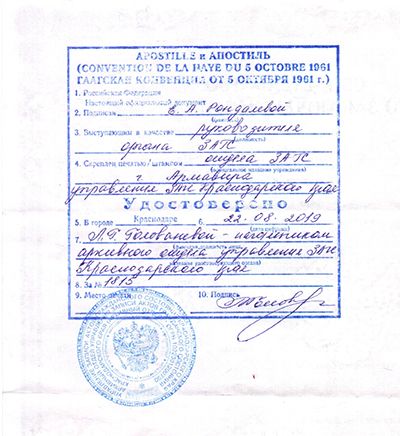 APOSTILLE и АПОСТИЛЬ
(CONVENTION DE LA HAYE DU 5 OCTOBRE 1961
ГААГСКАЯ КОНВЕНЦИЯ ОТ 5 ОКТЯБРЯ 1961 г.)
1. Российская Федерация
Настоящий официальный документ
2. Подписан Е. А.
(фамилия)
3. Выступающим в качестве руководителя
(должность)
органа ЗАГС
4. Скреплен печатью/штампом отдела ЗАГС
(официальное название учреждения)
г. Армавира
управления ЗАГС Краснодарского края
Удостоверено
5. В городе Краснодаре 6. 22-08-2019
(дата цифрами)
7. А.Г. Головановой - начальником
архивного отдела управления ЗАГС
Краснодарского края
8. За № 1815
9. Место печати 10. Подпись